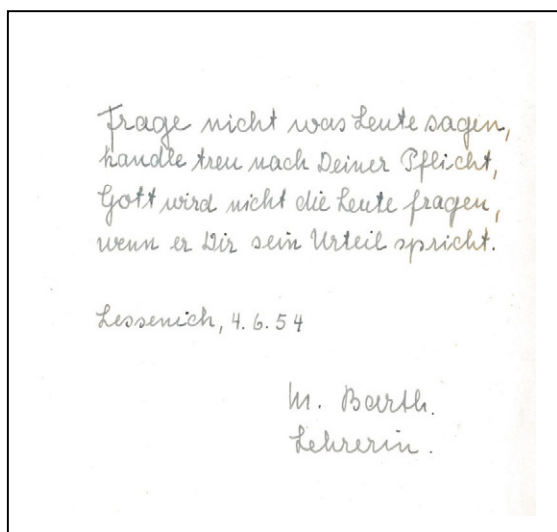 Frage nicht was Leute sagen,
handle treu nach Deiner Pflicht,
Gott wird nicht die Leute fragen,
wenn er Dir sein Urteil spricht.
Lessenich, 4. 6. 54
M. Barth.
Lehrerin.